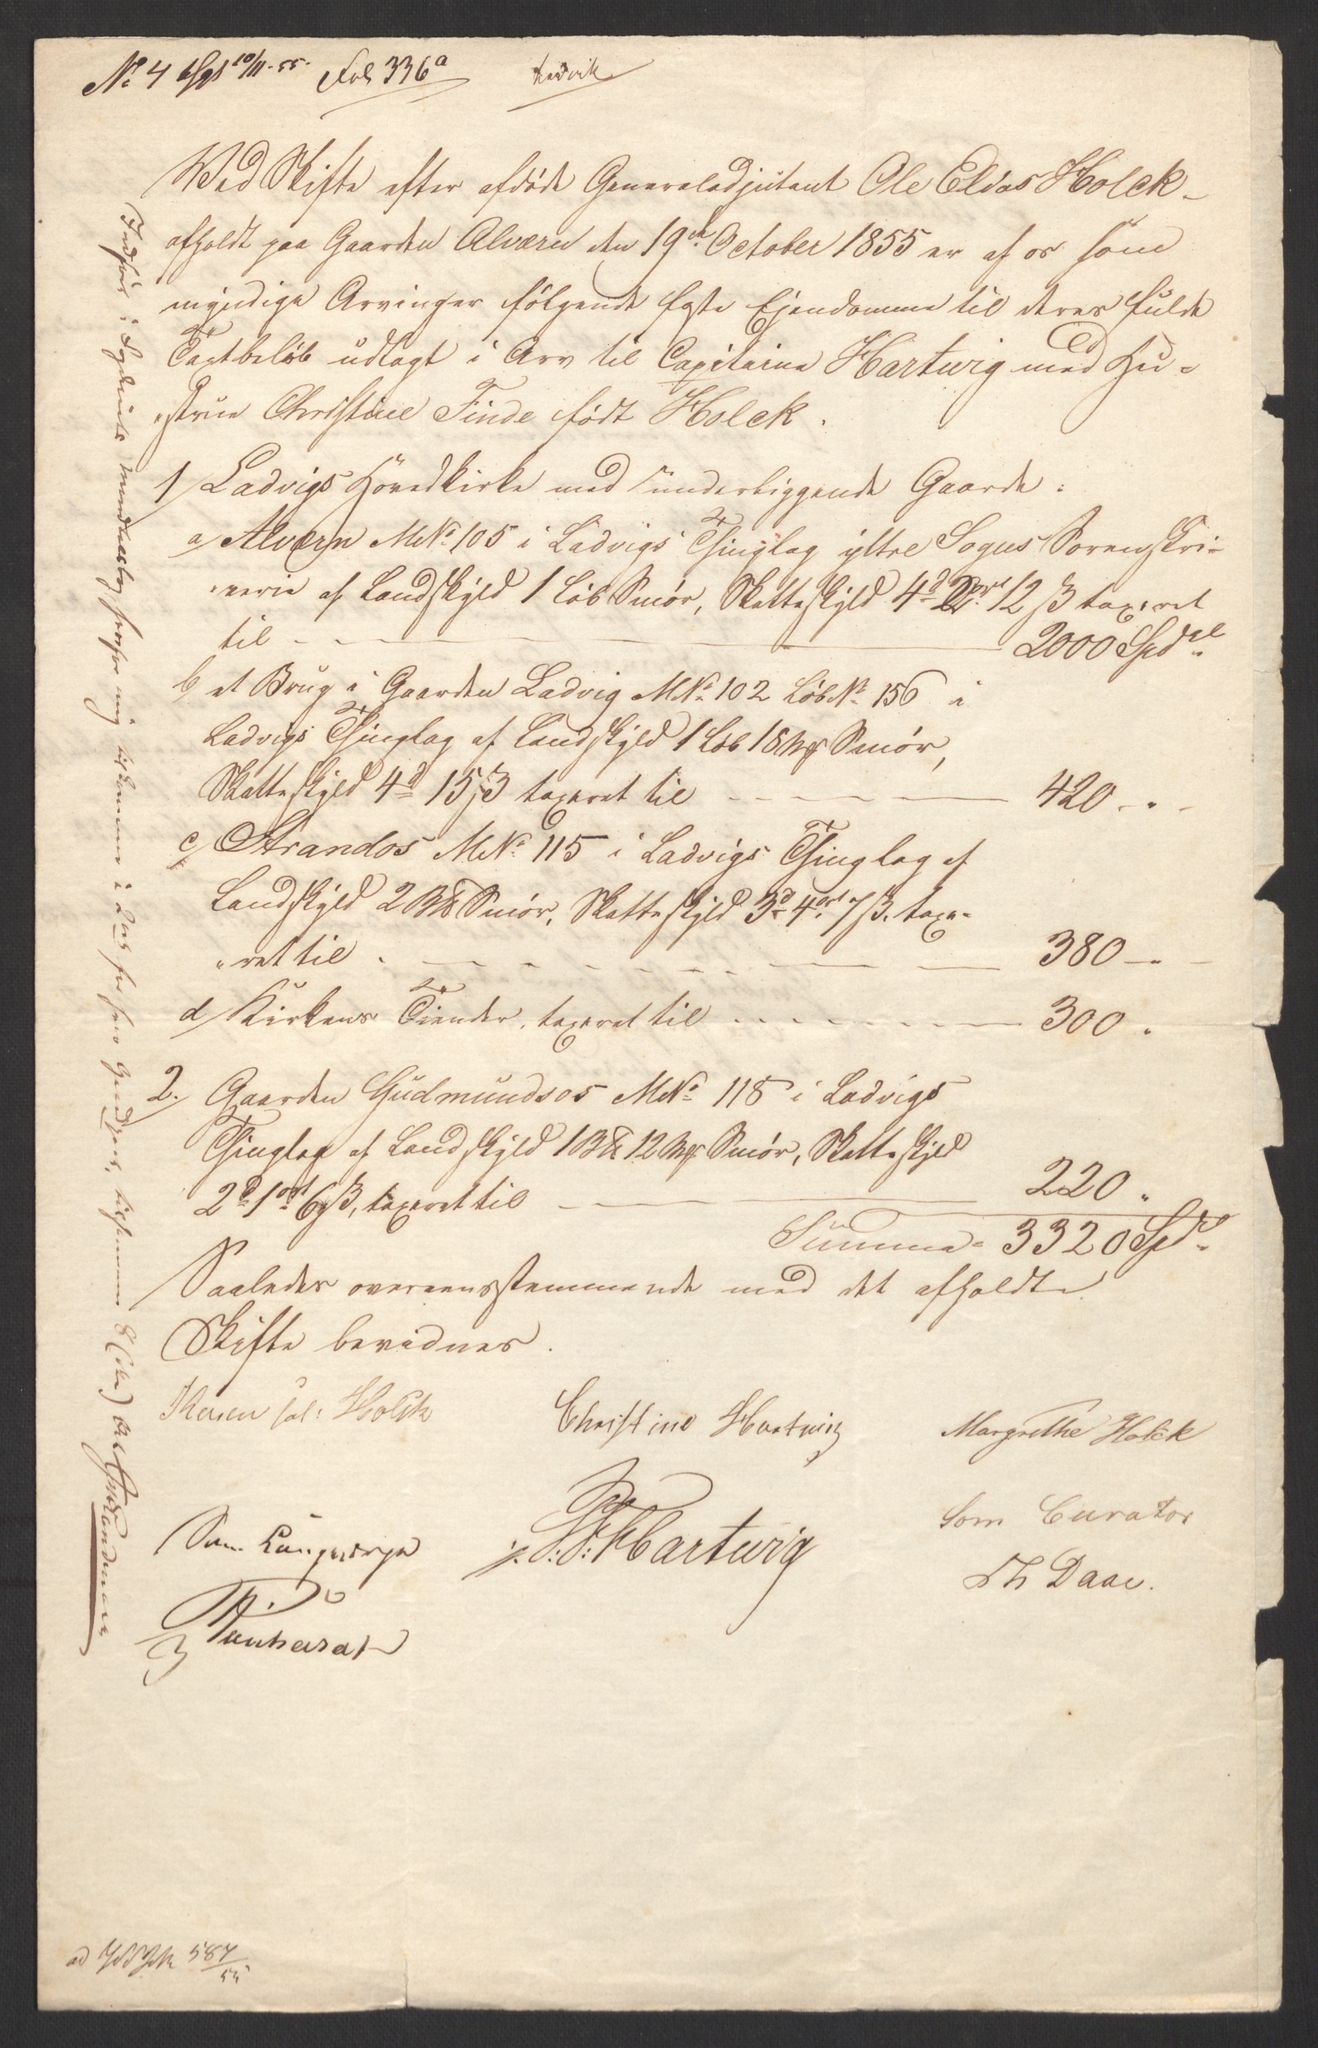 No 4 10/11-55. Fol 336a Ladvik
Ved Skifte efter afdøde Generaladjutant Ole Elias Holck
afholdt paa Gaarden Alværn den 19de October 1855 er af os som
myndige Arvinger følgende faste Ejendomme til deres fulde
Taxtbeløb udlagt i Arv til Capitaine Hartwig med Hu-
strue Christine Finde født Holck.
1/ Ladvigs Hovedkirke med underliggende Gaarde:
a/ Alværn MNo 105 i Ladvigs Thinglag yttre Sogns Sorenskri-
verie af Landskyld 1 Løb Smør, Skatteskyld 4d 2ort 12 ß taxeret
til - - - 2000 Spdl.
b/ et Brug i Gaarden Ladvig MNo 102 LøbNo 156 i
Ladvigs Thinglag af Landskyld 1 Løb 18 Mrk Smør,
Skatteskyld 4d 15 ß taxeret til - - - 420 - " -
c/ Strandos MNo 115 i Ladvigs Thinglag af
Landskyld 2 Smør, Skatteskyld 3d 4ort 7 ß. taxe-
ret til - - - 380 - " -
d/ Kirkens Tiender, taxeret til - - - 300 "
2. Gaarden Gudmundsos MNo 118 i Ladvigs
Thinglag af Landskyld 1 12 Mrk Smør, Skatteskyld
2d 1ort 6 ß, taxeret til - - - 220 "
Summa = 3320 Spd.
Saaledes overeensstemmende med det afholdte
Skifte bevidnes.
Holck Christine Hartwig Margrethe Holck
Som Hartwig Som Curator
Th Daae.
ad 587/55